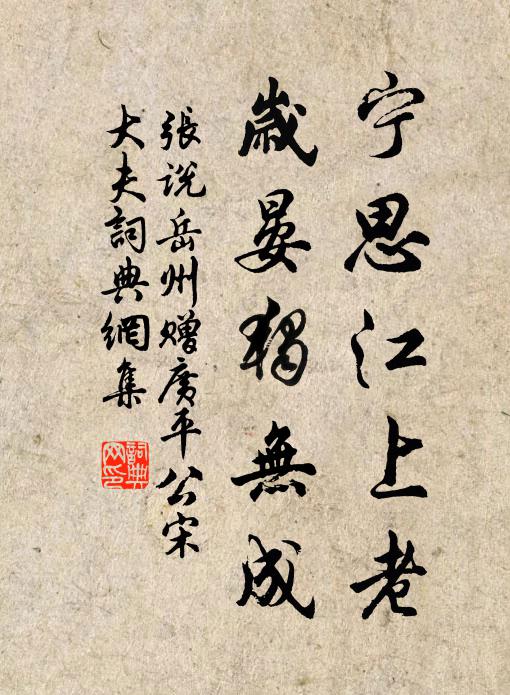 宁思江上老
歲晏獨無成
張説岳州贈廣平公宋
大夫詞典網集
詞典網印